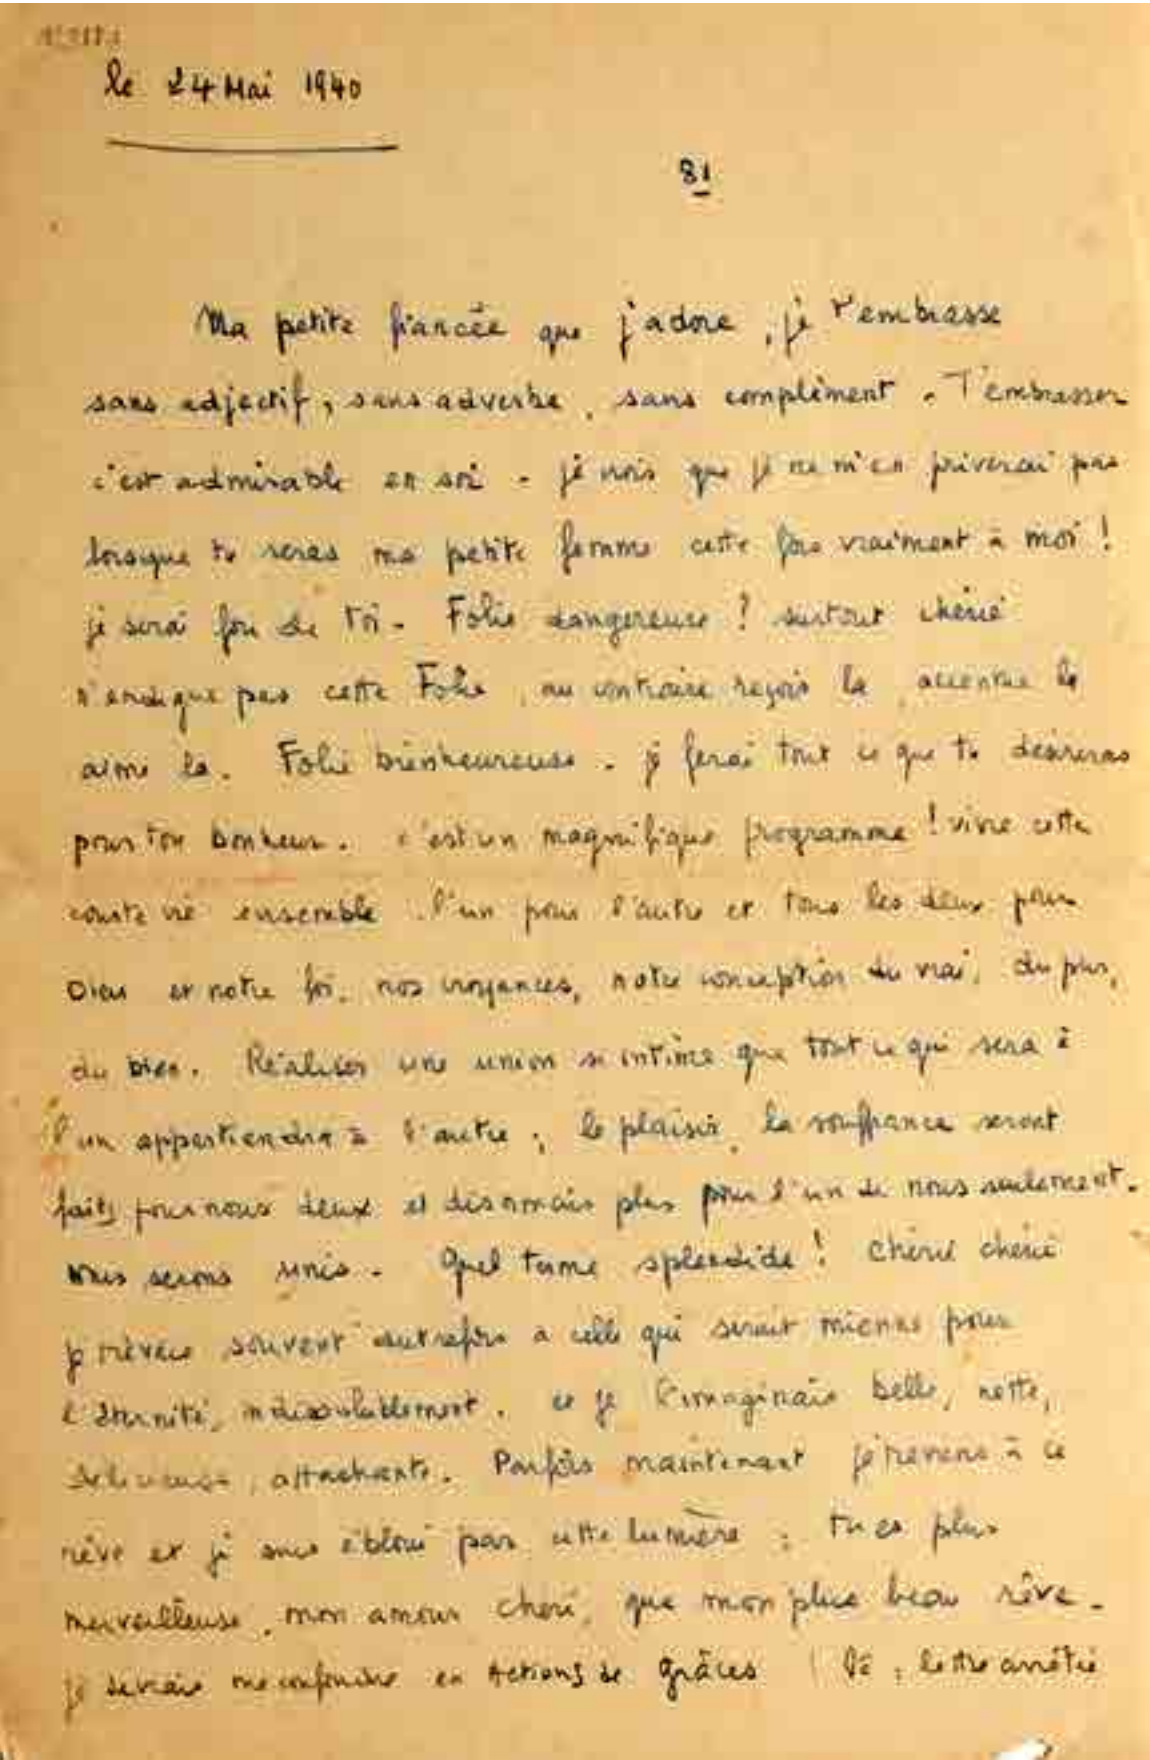 le 24 Mai 1940
81
Ma petite fiancée que j'adore, je t'embrasse
sans adjectif, sans adverbe, sans complément. T'embrasser
c'est admirable en soi - je crois que je ne m'en priverai pas
lorsque tu seras ma petite femme cette fois vraiment à moi !
je serai fou de toi - Folie dangereuse ? surtout chérie
n'endigue pas cette Folie, au contraire reçois la, accentue la
aime la. Folie bienheureuse. je ferai tout ce que tu désireras
pour ton bonheur. c'est un magnifique programme ! vivre cette
courte vie ensemble, l'un pour l'autre et tous les deux pour
Dieu et notre foi, nos croyances, notre conception du vrai, du pur,
du bien. Réaliser une union si intime que tout ce qui sera à
l'un appartiendra à l'autre ; le plaisir, la souffrance seront
faits pour nous deux et désormais plus pour l'un de nous seulement.
nous serons unis - Quel terme splendide ! chérie chérie
je rêvais souvent autrefois à celle qui serait mienne pour
l'éternité, indissolublement. et je l'imaginais belle, nette,
délicieuse, attachante. Parfois maintenant je reviens à ce
rêve et je suis ébloui par cette lumière : tu es plus
merveilleuse, mon amour chéri, que mon plus beau rêve -
je devrais me confondre en Actions de grâces ! lettre arrêtée